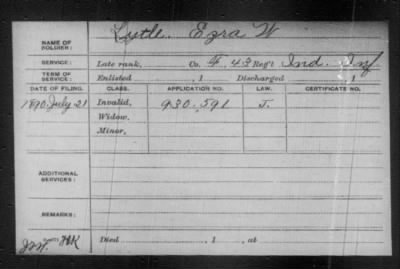 NAME OF SOLDIER: Lytle. Ezra W
SERVICE: Late rank, Co. F, 43 Reg't Ind. Inf
TERM OF SERVICE: Enlisted , 1 Discharged , 1
DATE OF FILING. CLASS. APPLICATION NO. LAW. CERTIFICATE NO.
1890. July 21 Invalid, 930.591 J.
Widow,
Minor,
ADDITIONAL SERVICES:
REMARKS:
Died , 1 , at